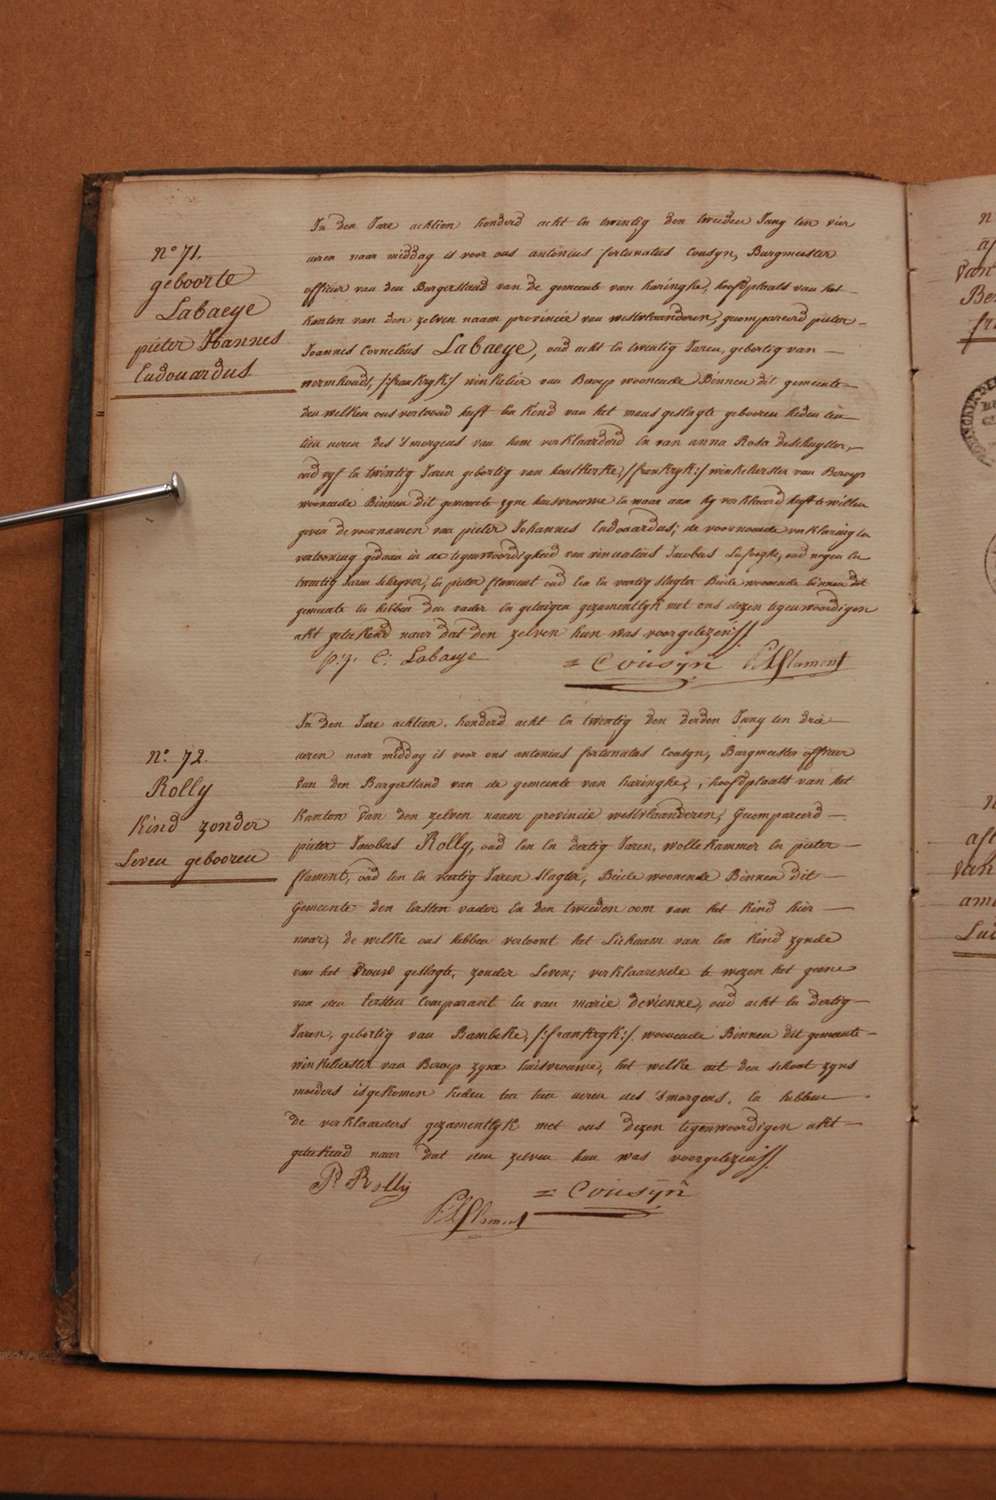 N° 71.
geboorte
Labaeye
pieter Hannes
Eudouardus
In den Jare achtien honderd acht en twintig den tweeden Juny ten vier
uren naar middag is voor ons antonius fortunatus Cousyn, Burgmeester
officier van den Borgerstand van de gemeente van haringhe, hoofdplaats van het
kanton van den zelven naam provincie van westvlaanderen, gecompareerd pieter
Joannes Cornelius Labaeye, oud acht en twintig Jaren, geboortig van
wormhoudt, /:frankryk:/ winkelier van Beroep woonende Binnen dit gemeente
den welken ons vertoond heeft een kind van het mans geslagte gebooren heden ten
tien uren des 's morgens van hem verklaarderd en van anna Rosa deschuytter,
oud vyf en twintig Jaren geboortig van houtkerke, /:frankryk:/ winkelierster van Beroep
woonende Binnen dit gemeente zyne huisvrouwe en waar aan hy verklaard heeft te willen
geven de voornamen van pieter Johannes Eudouardus; de voornoemde verklaring en
vertooning gedaan in de tegenwoordigheid van Jacobus oud negen en
twintig Jaren schryver, en pieter flament oud een en veertig slagter Beide woonende binnen dit
gemeente en hebben den vader en getuigen gezamentlyk met ons dezen tegenwoordigen
akt geteekend naar dat den zelven hun was voorgelezen//.
p: j: C: Labaeye = Cousyn PJflament
N° 72.
Rolly
kind zonder
Leven gebooren
In den Jare achtien honderd acht en twintig den derden Juny ten drie
uren naar middag is voor ons antonius fortunatus Cousyn, Burgmeester officier
van den Borgerstand van de gemeente van haringhe, hoofdplaats van het
kanton van den zelven naam provincie westvlaanderen, Gecompareerd
pieter Jacobus Rolly, oud een en dertig Jaren, wollekammer en pieter
flament, oud een en veertig Jaren slagter, Beide woonende Binnen dit
Gemeente den Eersten vader en den tweeden oom van het kind hier
naar, de welke ons hebben vertoont het Lichaam van een kind zynde
van het vrouwe geslagte, zonder Leven; verklaarende te wezen het geene
van den Eersten Comparant en van marie devienne, oud acht en dertig
Jaren, geboortig van Bambeke /:frankryk:/ woonende Binnen dit gemeente
winkelierster van Beroep zyne huisvrouwe, het welke uit den schoot zyns
moeders is gekomen heden ten twee uren des 's morgens, en hebben
de verklaarders gezamentlyk met ons dezen tegenwoordigen akt
geteekend naar dat den zelven hun was voorgelezen//.
P. Rolly = Cousyn
PJflament